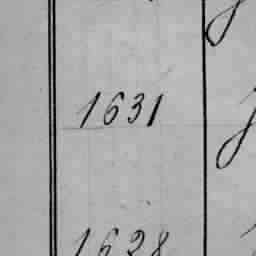 1631
1628